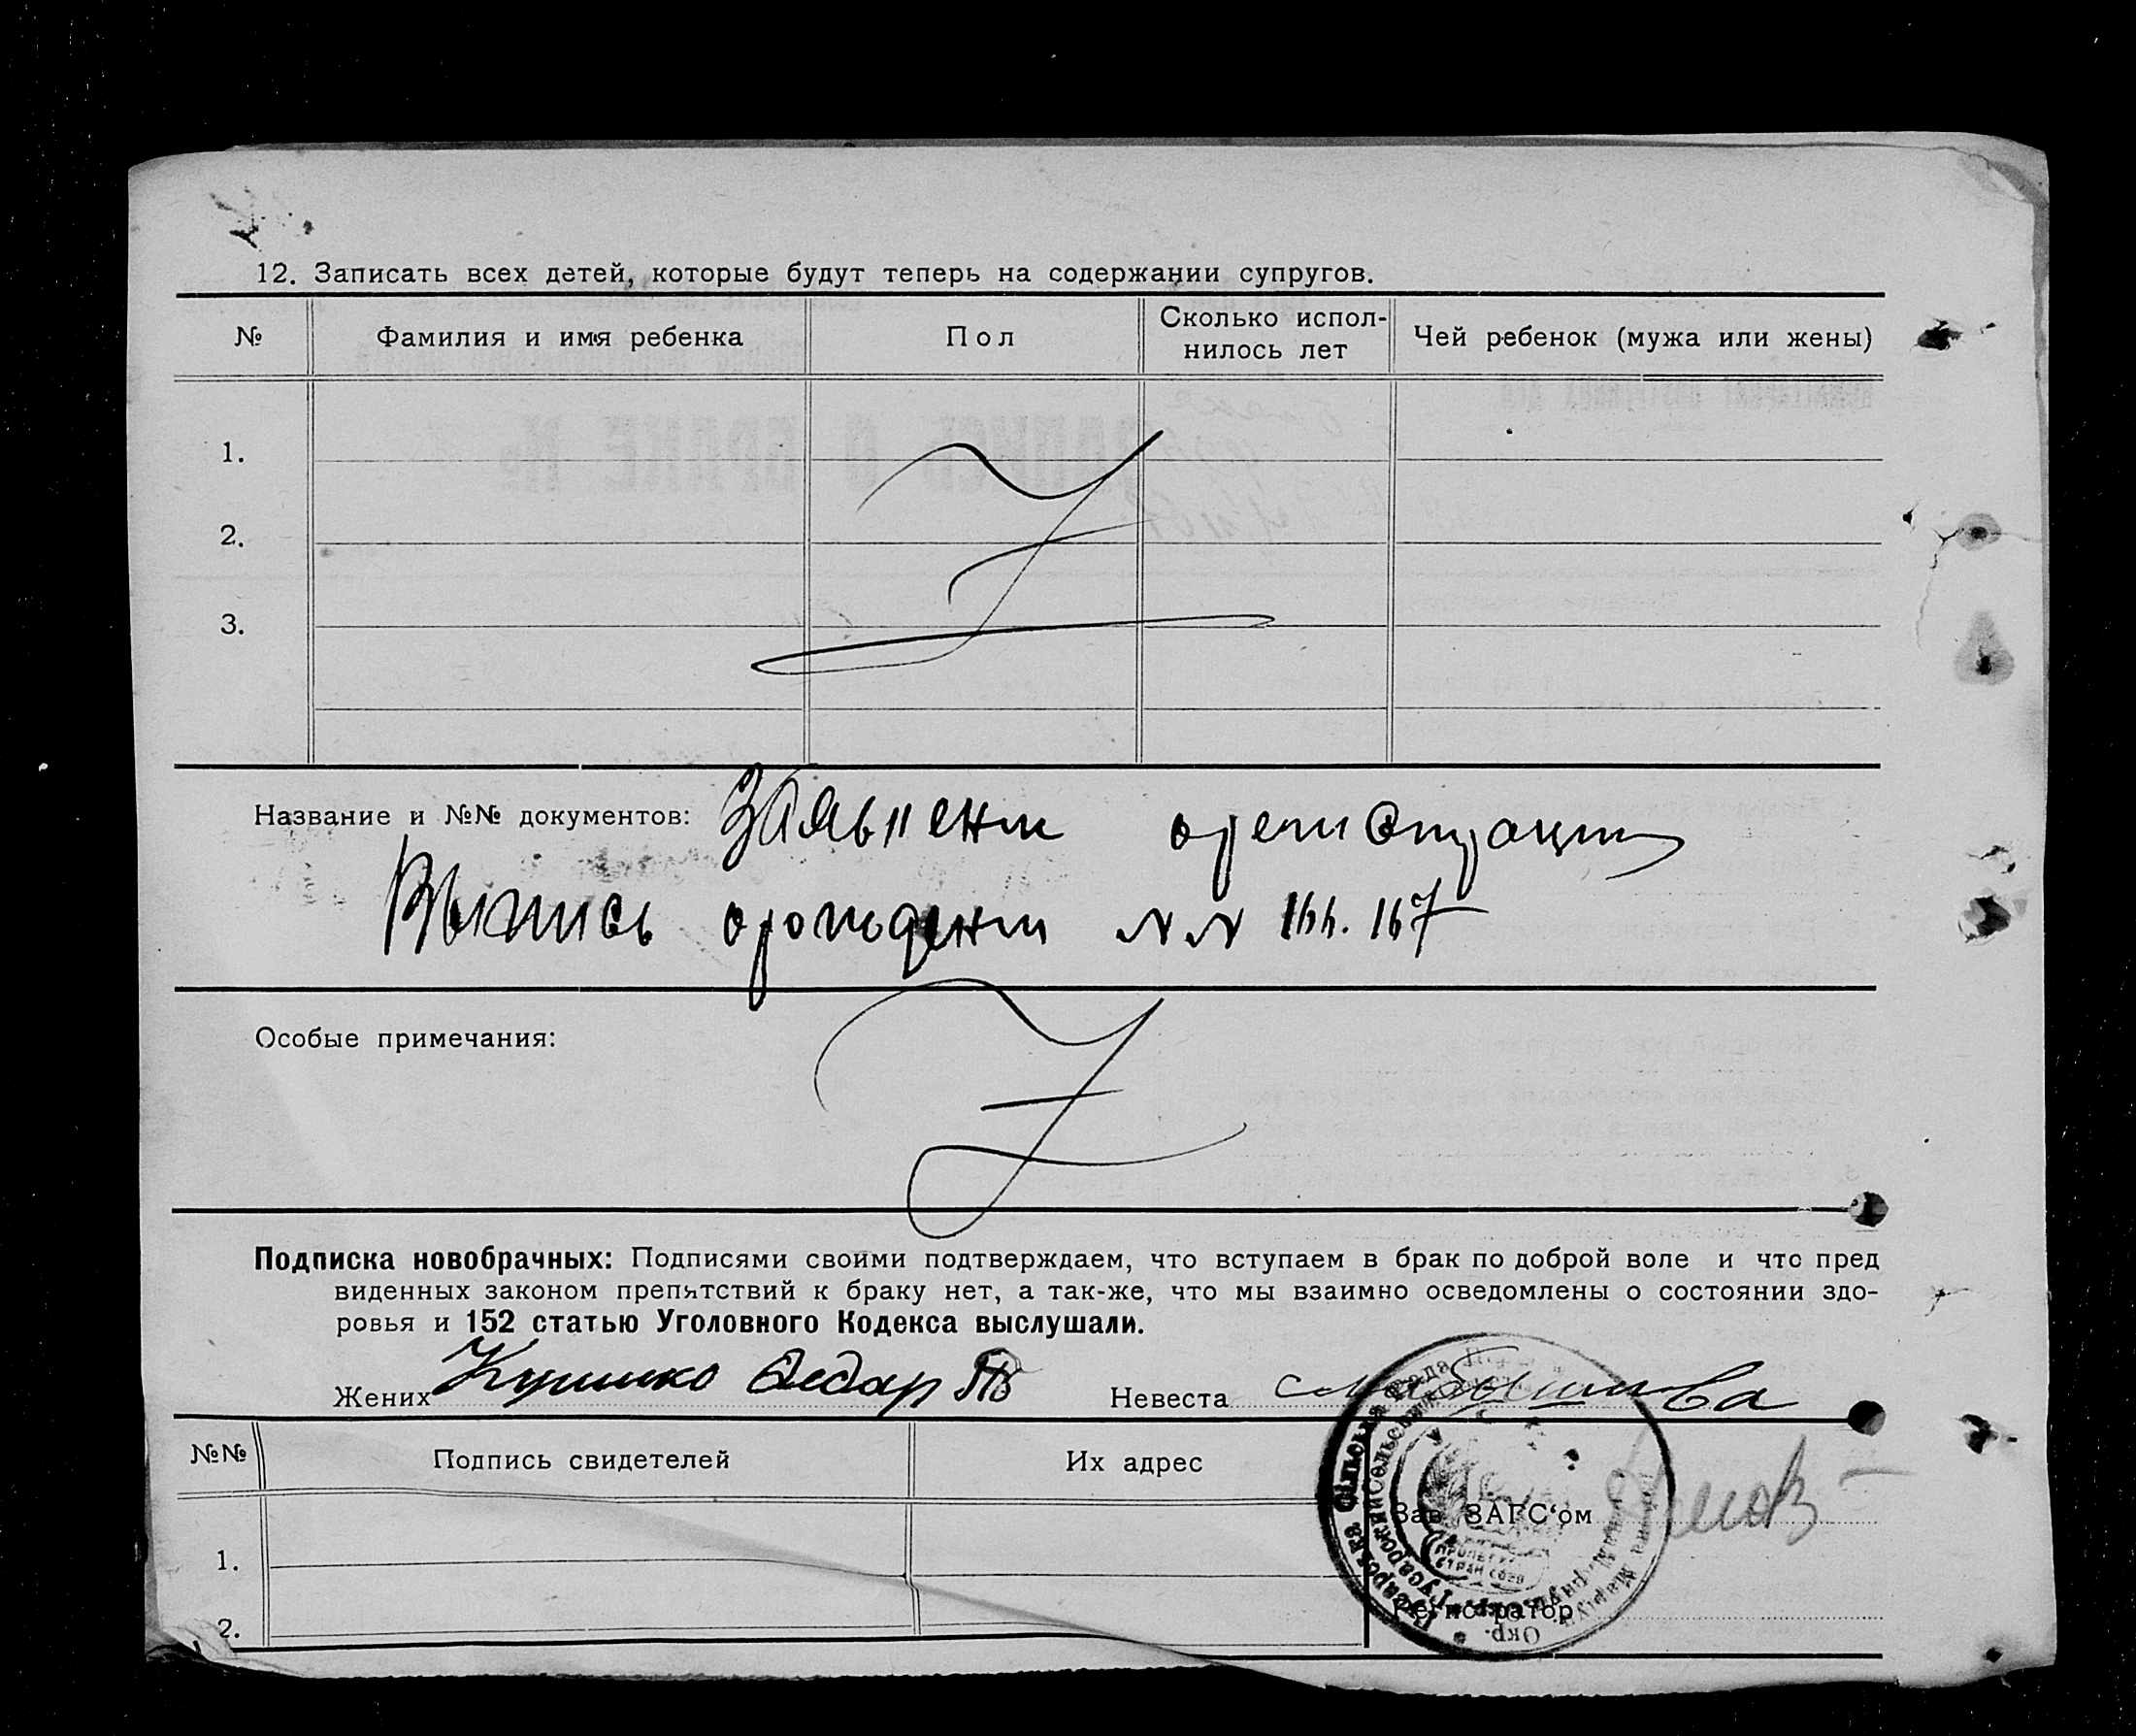 12. Записать всех детей, которые будут теперь на содержании супругов.
№ Фамилия и имя ребенка Пол Сколько испол-нилось лет Чей ребенок (мужа или жены)
1.
2.
3.
Название и №№ документов: Заявлени
Выпись орождени NN 166. 167
Особые примечания:
Подписка новобрачных: Подписями своими подтверждаем, что вступаем в брак по доброй воле и что пред
виденных законом препятствий к браку нет, а так-же, что мы взаимно осведомлены о состоянии здо-
ровья и 152 статью Уголовного Кодекса выслушали.
Жених Невеста
№№ Подпись свидетелей Их адрес
Зав. ЗАГС'ом
1.
Регистратор
2.